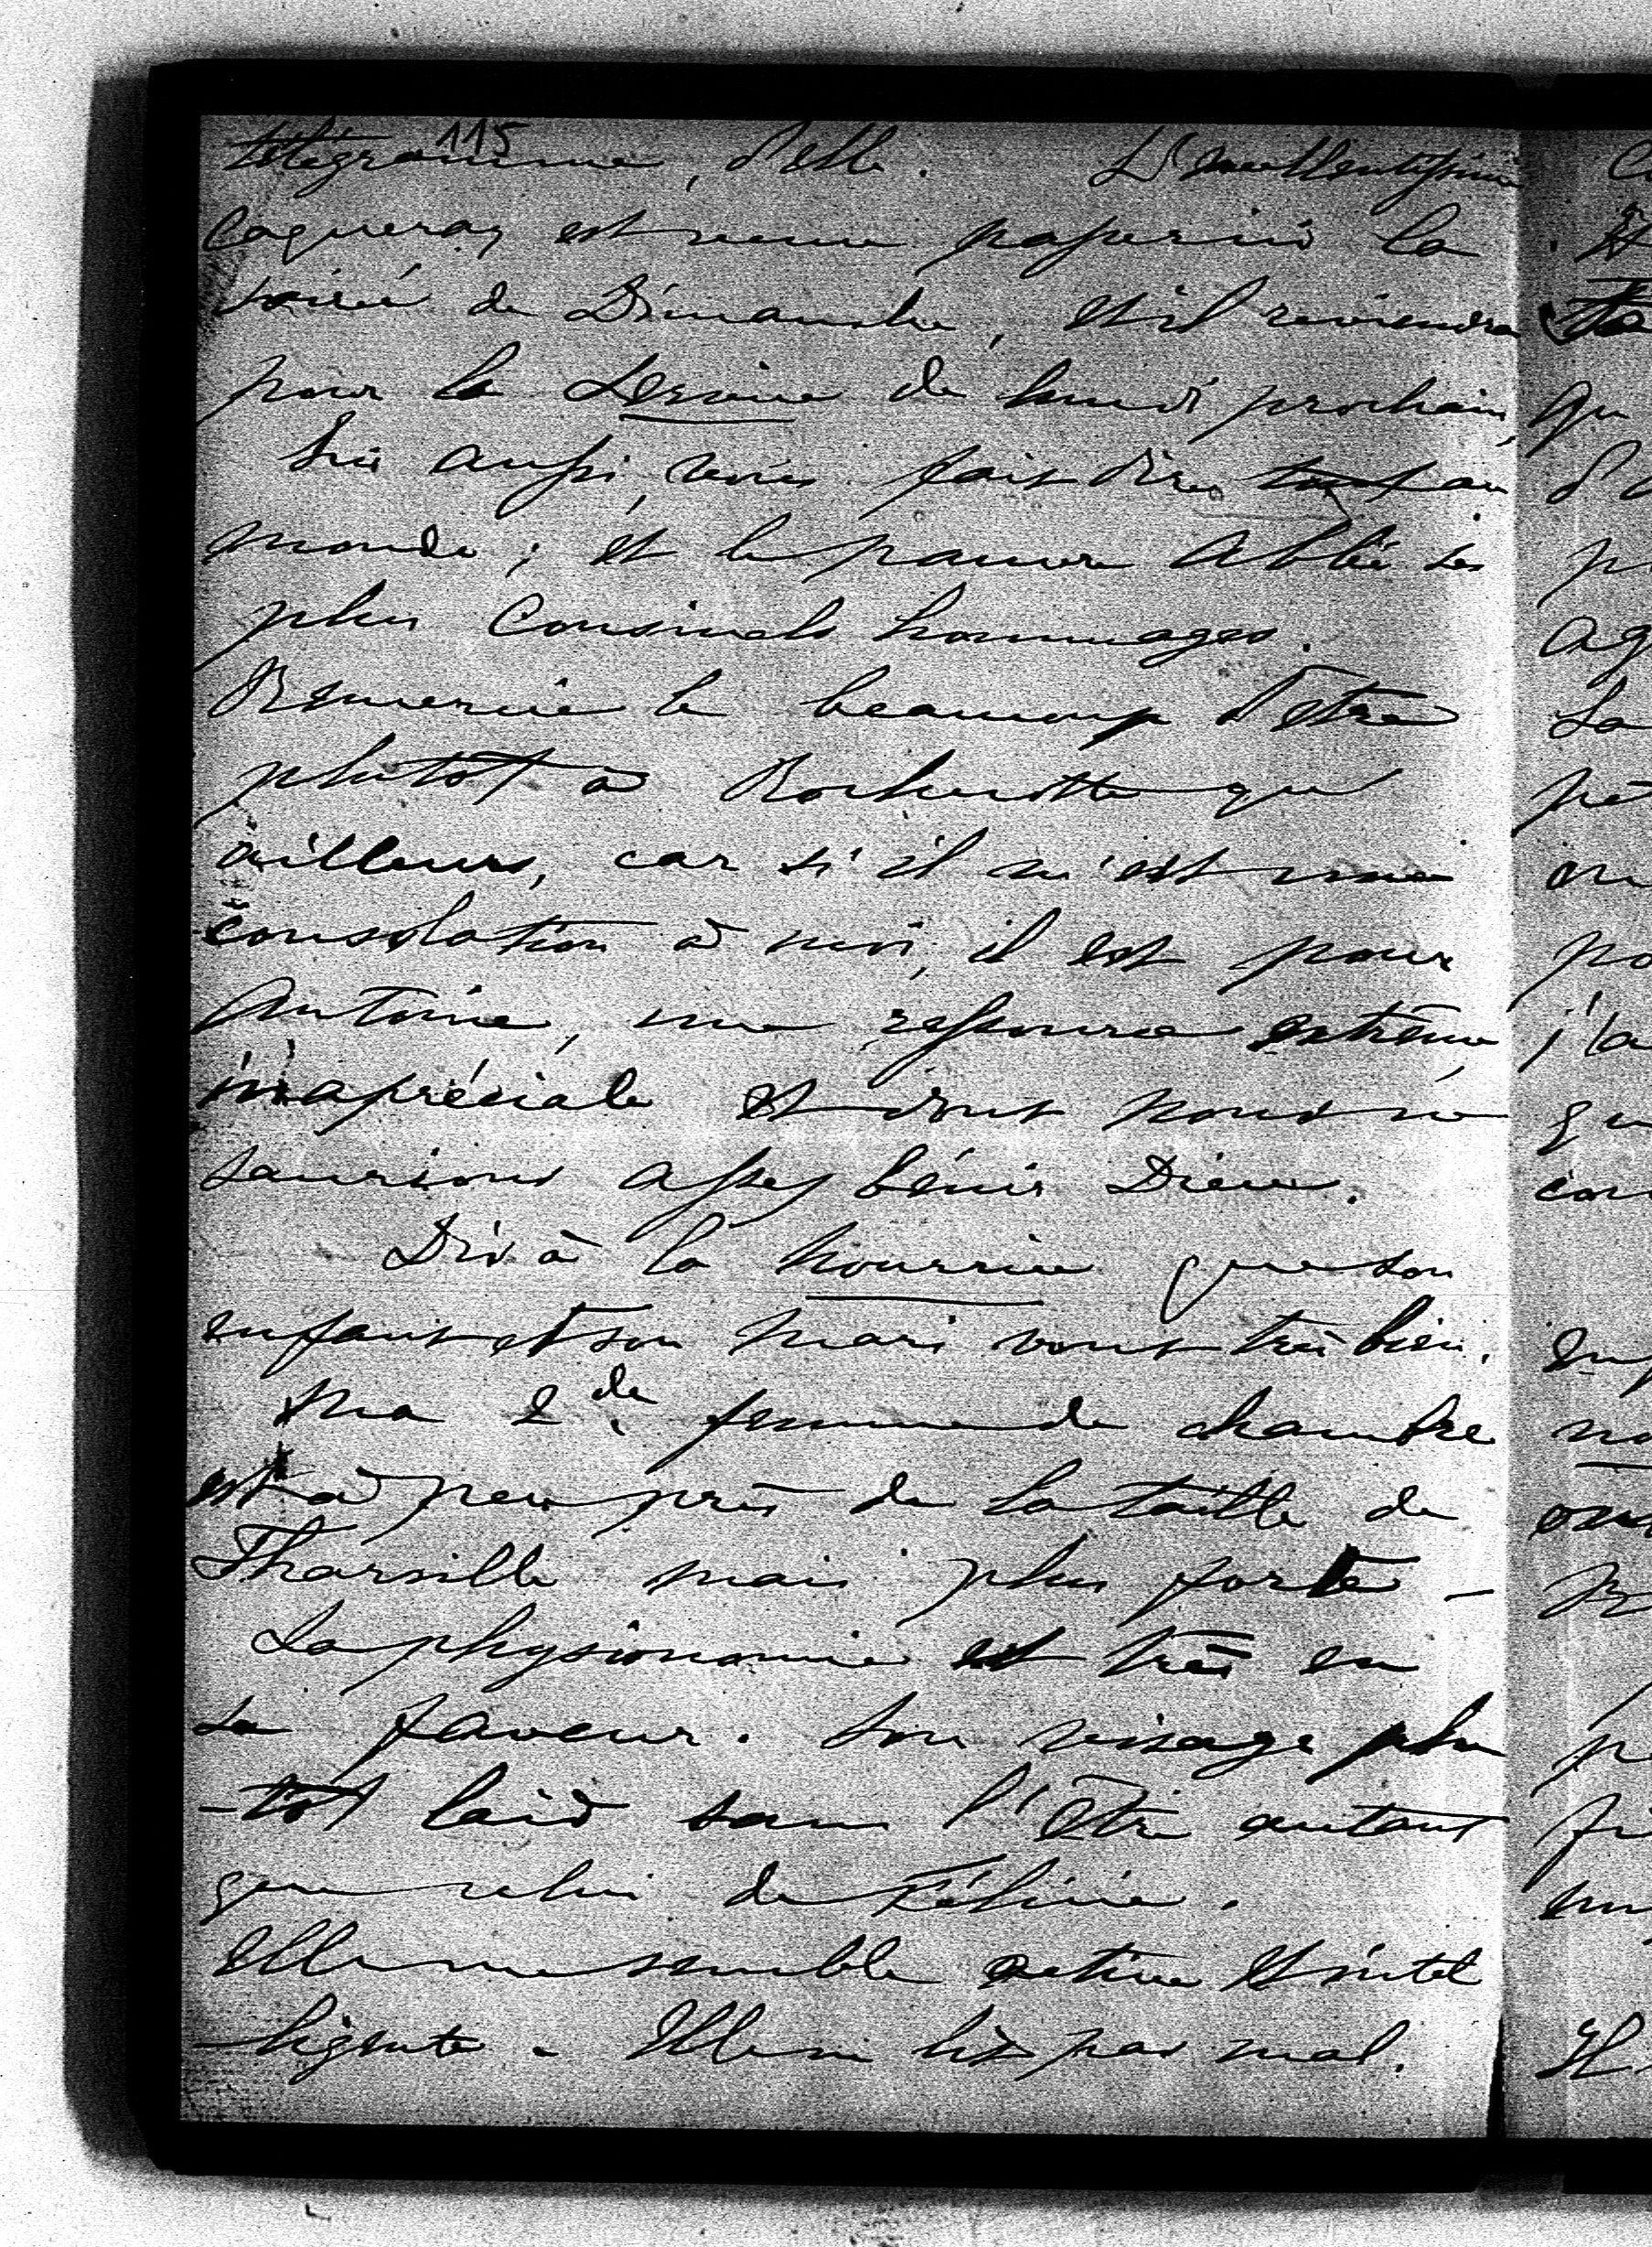 115
télégramme, d'elle. L'excellentissime
Caqueray est venu passer ici la
soirée de Dimanche, et il reviendra
pour la de lundi prochain,
Lui aussi, vous fait dire tout au
monde; et le pauvre Abbé ses
plus Cousinels hommages.
Remercie le beaucoup d'être
plutot à Rochecotte qu'
ailleurs, car s'il m'est une
consolation à moi, il est pour
Antoine, une ressource extrême,
inapréciable et dont nous ne
saurions assez bénir Dieu.
Dis à la nourrice que son
enfant et son mari vont très bien.
Ma 2de femme de chambre
est à peu près de la taille de
Tharsille mais plus forte -
La physionomie est très en
sa faveur. Son visage plu
-tôt laid sans l'être autant
que celui de Félicie.
Elle me semble active et intel
-ligente. Elle ne lis pas mal.